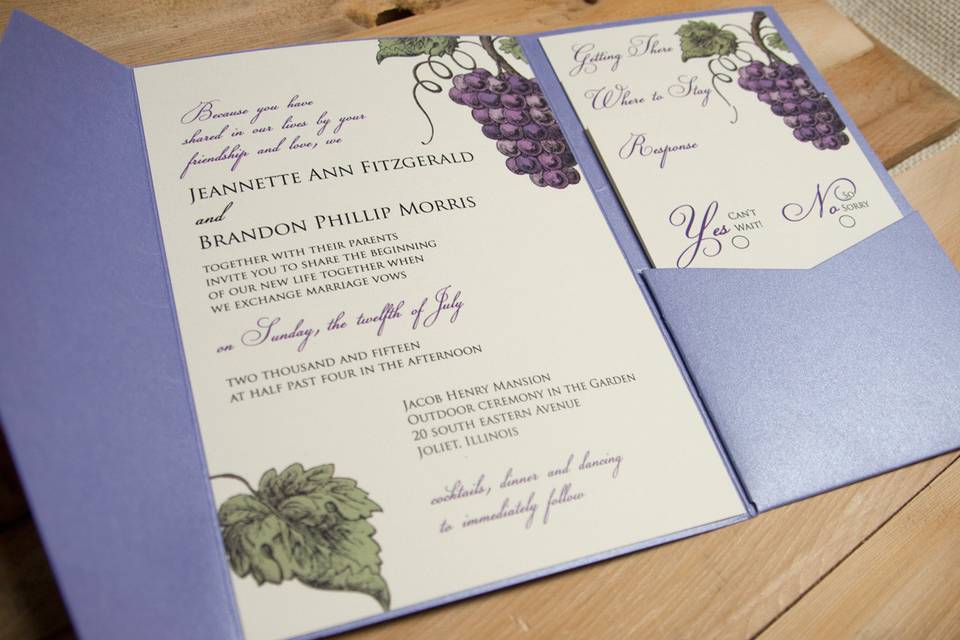 Because you have
shared in our lives by your
friendship and love, we
Jeannette Ann Fitzgerald
and
Brandon Phillip Morris
together with their parents
invite you to share the beginning
of our new life together when
we exchange marriage vows
on Sunday, the twelfth of July
two thousand and fifteen
at half past four in the afternoon
Jacob Henry Mansion
Outdoor ceremony in the Garden
20 south eastern Avenue
Joliet, Illinois
cocktails, dinner and dancing
to immediately follow
Getting There
Where to Stay
Response
Yes Can't Wait!
No So Sorry